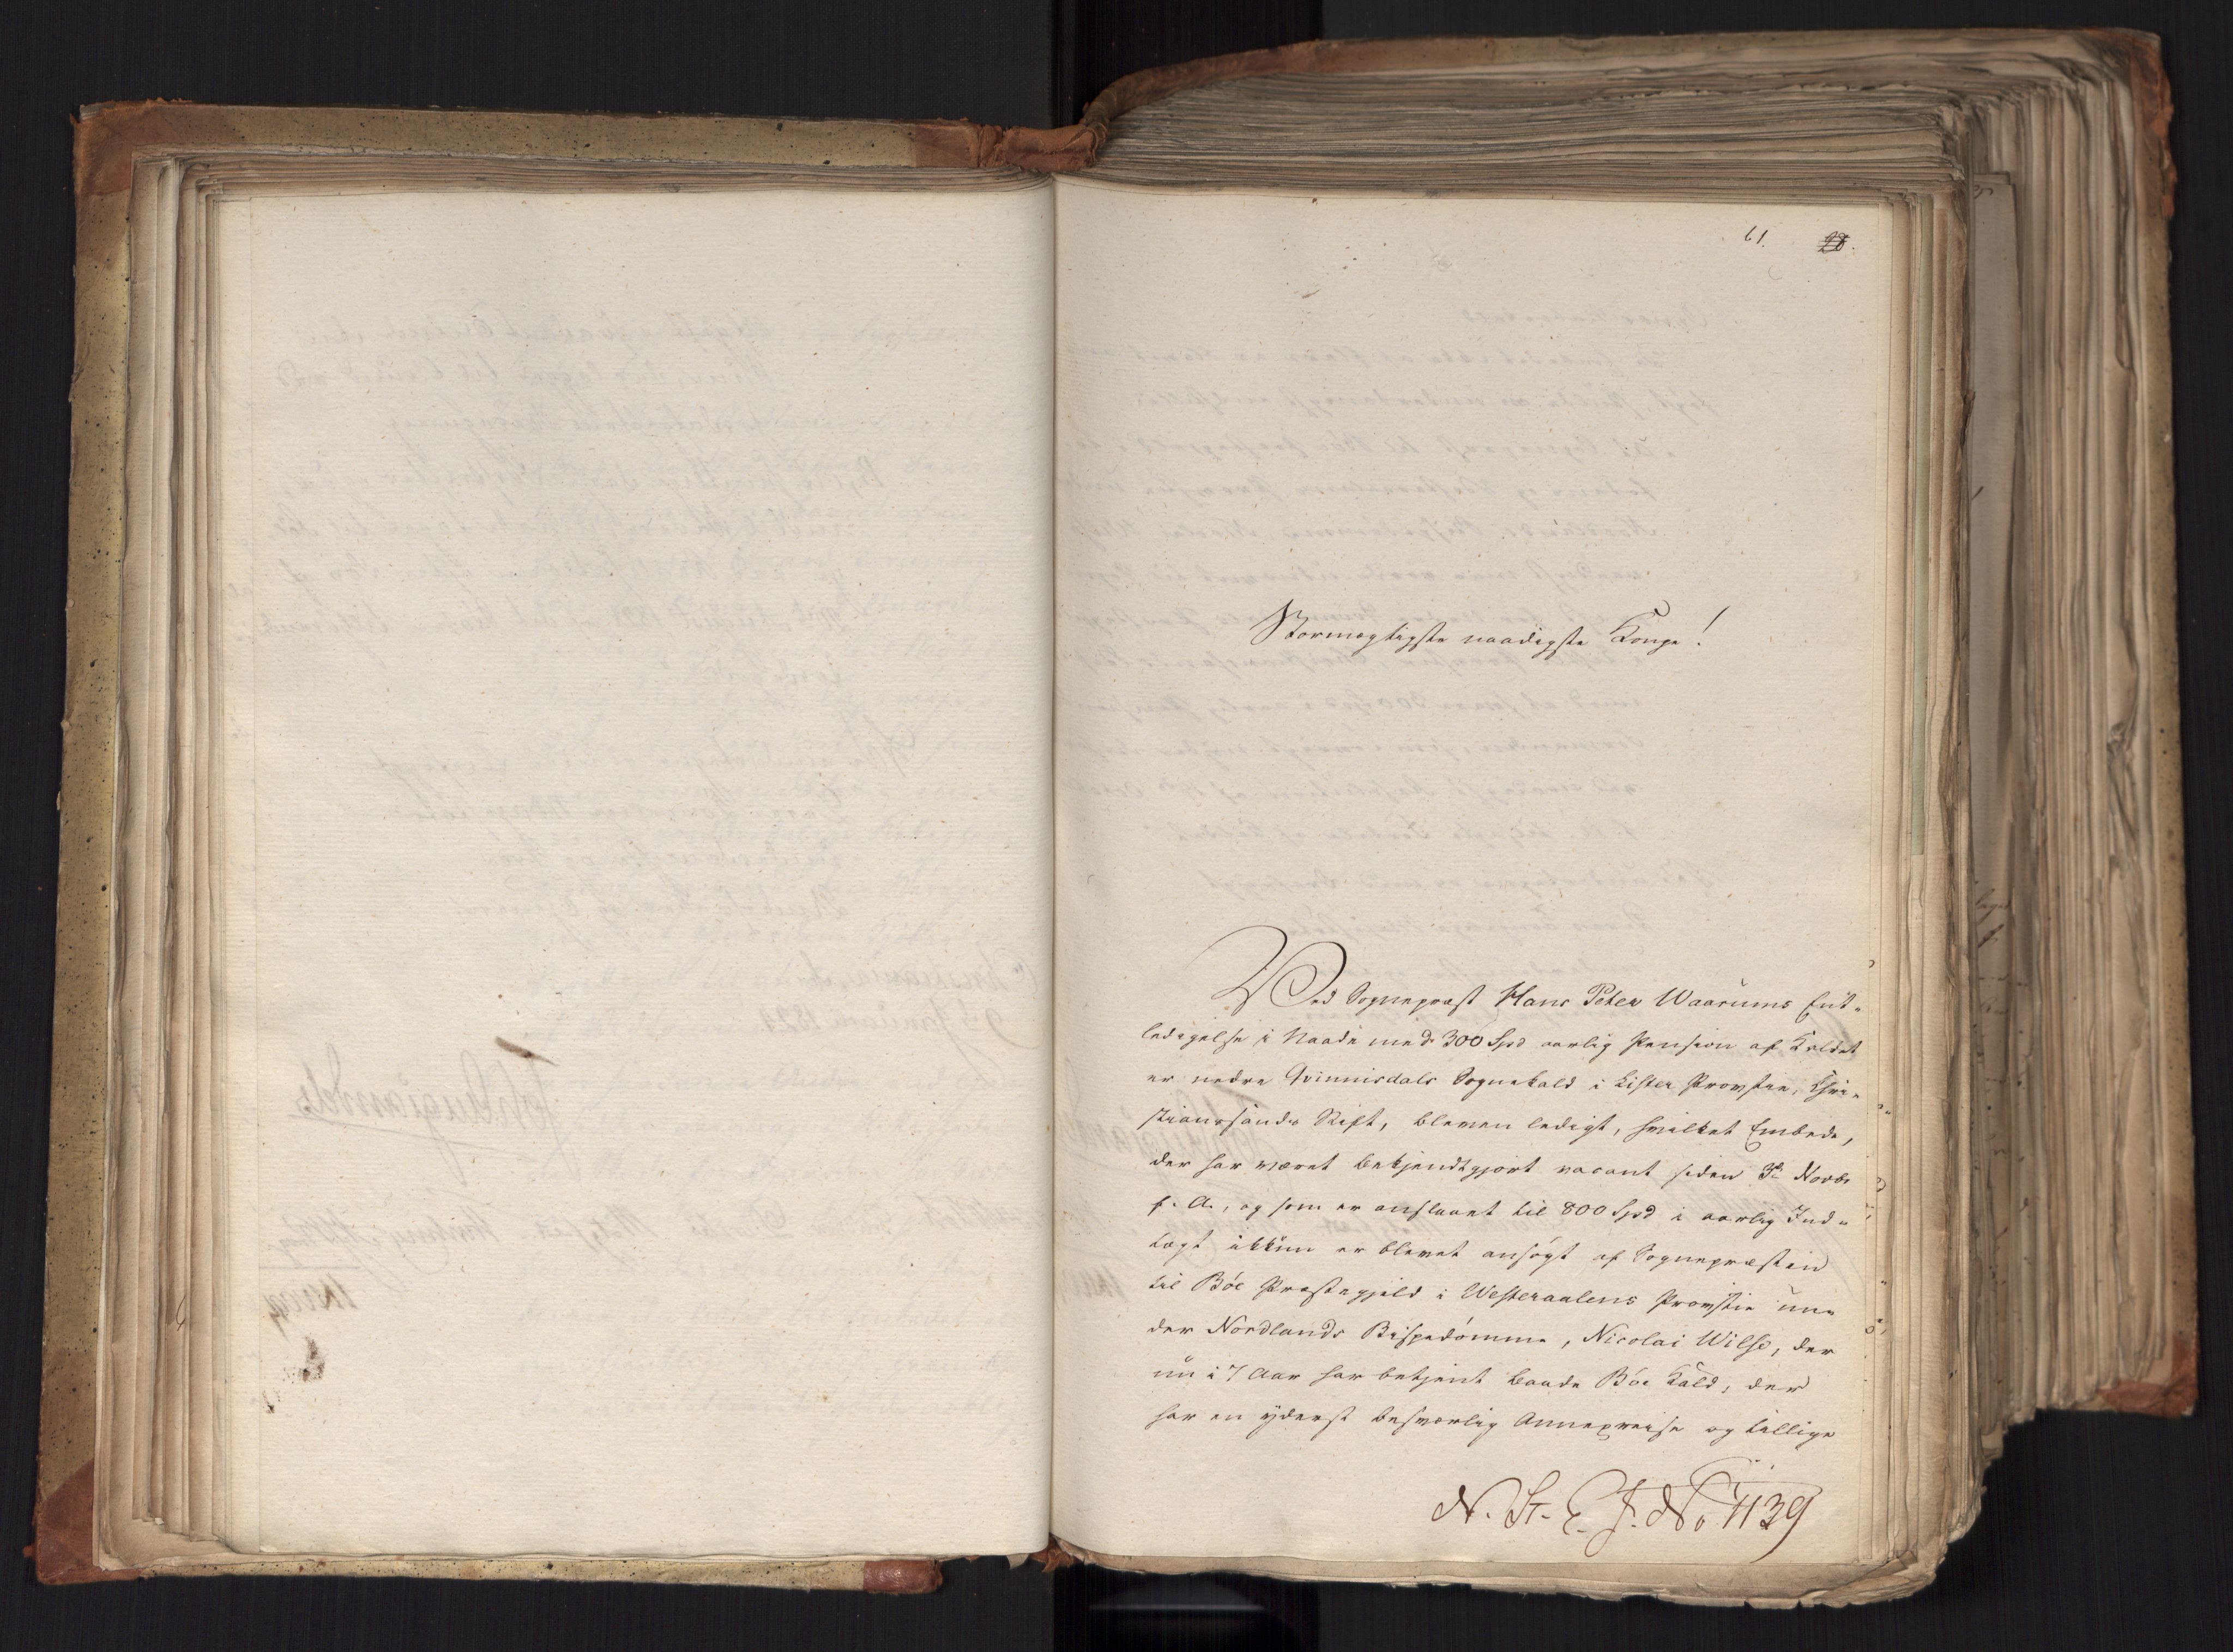 61. 28.
Stormægtigste naadigste Konge!
Ved Sognepræst Hans Peter Waarums Ent-
ledigelse i Naade med 300 Spd aarlig Pension af Kaldet
er nedre Qvinnisdals Sognekald i Lister Provstie, Chri-
stianssands Stift, bleven ledigt, hvilket Embede,
der har været bekjendtgjort vacant siden Novbr
f. A., og som er anslaaet til 800 Spd i aarlig Ind-
tægt ikkun er blevet ansøgt af Sognepræsten
til Böe Præstegjeld i Westeraalens Provstie un-
der Nordlands Bispedömme, Nicolai Wilse, der
nu i 7 Aar har betjent baade Böe Kald, der
har en yderst besværlig Annexreise og tillige
N. St. E. J. No 1139